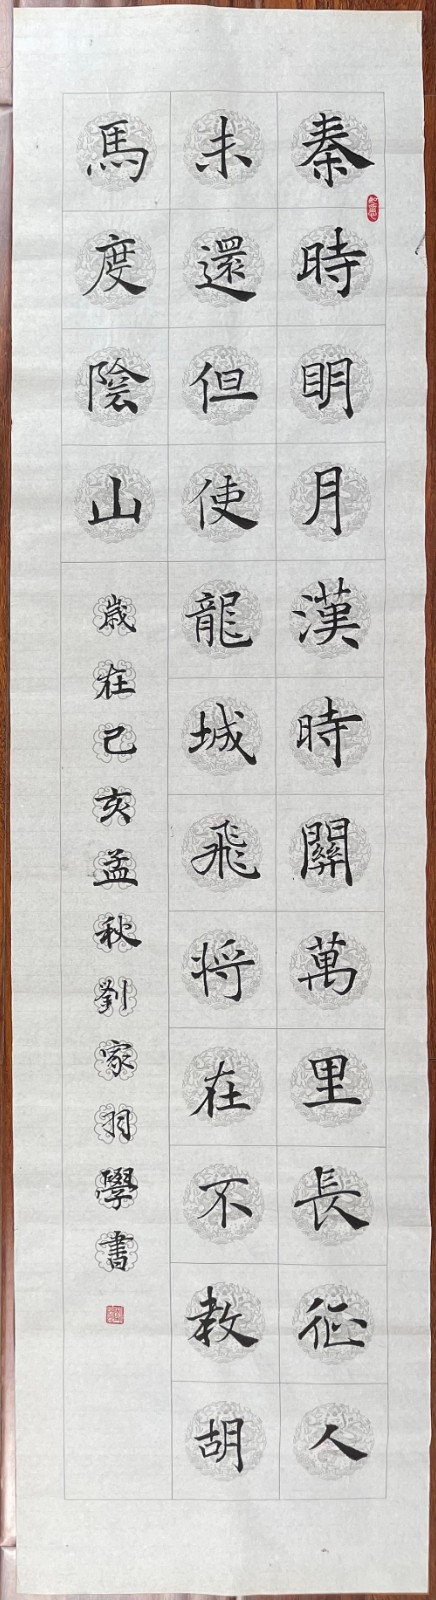 秦時明月漢時關萬里長征人
未還但使龍城飛将在不教胡
馬度陰山
歲在己亥孟秋劉家羽學書